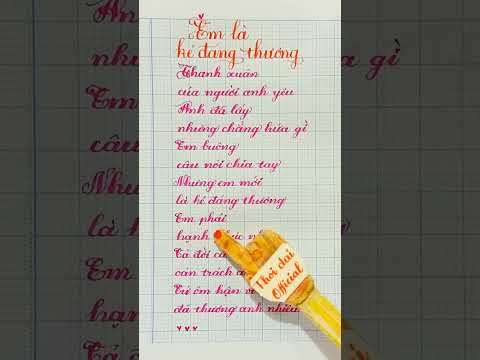 Em là
kẻ đáng thương
Thanh xuân
của người anh yêu
Anh đã lấy
nhưng chẳng hứa gì
Em buông
câu nói chia tay
Nhưng em mới
là kẻ đáng thương
Em phải
hạnh
Cả đời
oán trách
Tự ôm hận
đã thương anh nhiều
Thời đại
Official